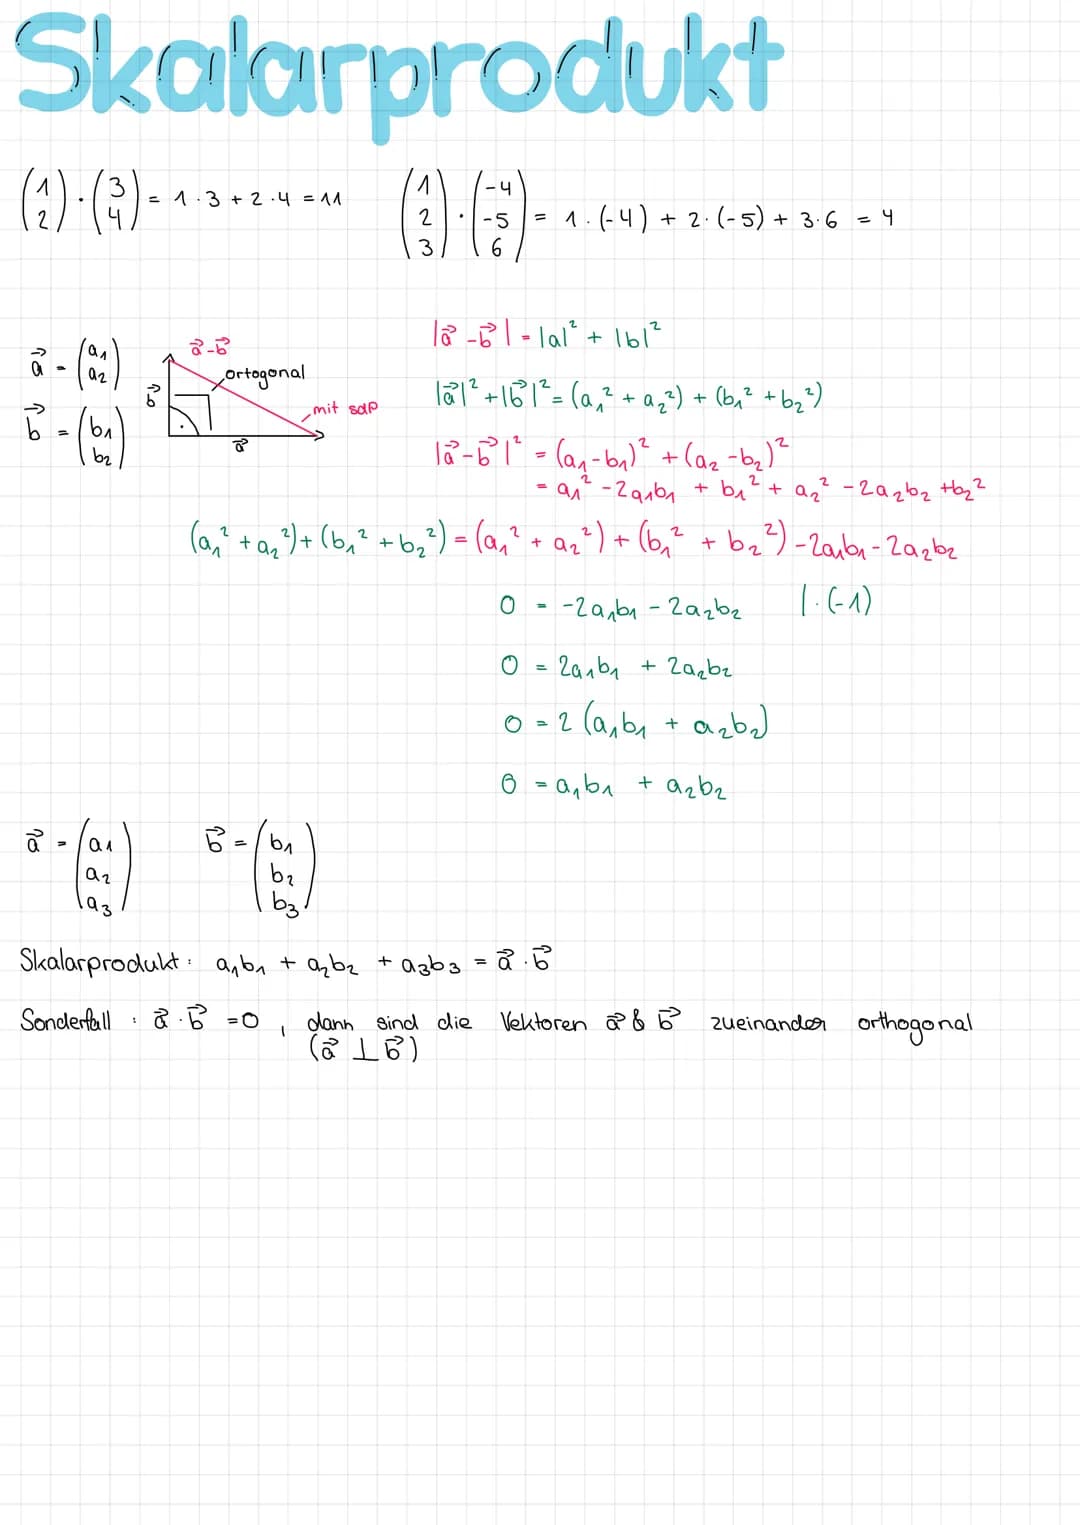 Skalarprodukt
(1 2) · (3 4) = 1·3 + 2·4 = 11
(1 2 3) · (-4 -5 6) = 1·(-4) + 2·(-5) + 3·6 = 4
a⃗ = (a₁ a₂)
b⃗ = (b₁ b₂)
a⃗-b⃗
ortogonal
mit sdp
b⃗
a⃗
|a⃗ -b⃗| = |a|² + |b|²
|a⃗|² + |b⃗|² = (a₁² + a₂²) + (b₁² + b₂²)
|a⃗-b⃗|² = (a₁-b₁)² + (a₂-b₂)²
= a₁² - 2a₁b₁ + b₁² + a₂² - 2a₂b₂ + b₂²
(a₁² + a₂²) + (b₁² + b₂²) = (a₁² + a₂²) + (b₁² + b₂²) - 2a₁b₁ - 2a₂b₂
0 = -2a₁b₁ - 2a₂b₂ |·(-1)
0 = 2a₁b₁ + 2a₂b₂
0 = 2 (a₁b₁ + a₂b₂)
0 = a₁b₁ + a₂b₂
a⃗ = (a₁ a₂ a₃) b⃗ = (b₁ b₂ b₃)
Skalarprodukt: a₁b₁ + a₂b₂ + a₃b₃ = a⃗ · b⃗
Sonderfall : a⃗ · b⃗ = 0 , dann sind die Vektoren a⃗ & b⃗ zueinander orthogonal
(a⃗ ⊥ b⃗)